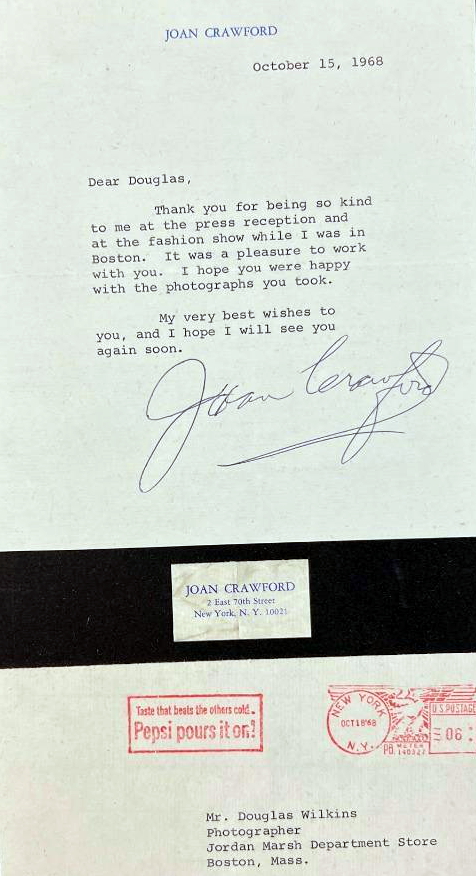 JOAN CRAWFORD
October 15, 1968
Dear Douglas,
Thank you for being so kind
to me at the press reception and
at the fashion show while I was in
Boston. It was a pleasure to work
with you. I hope you were happy
with the photographs you took.
My very best wishes to
you, and I hope I will see you
again soon.
Joan Crawford
JOAN CRAWFORD
2 East 70th Street
New York, N. Y. 10021
Taste that beats the others cold..
Pepsi pours it on!
NEW YORK
OCT 18'68
N.Y.
U.S. POSTAGE
06
PB METER
Mr. Douglas Wilkins
Photographer
Jordan Marsh Department Store
Boston, Mass.